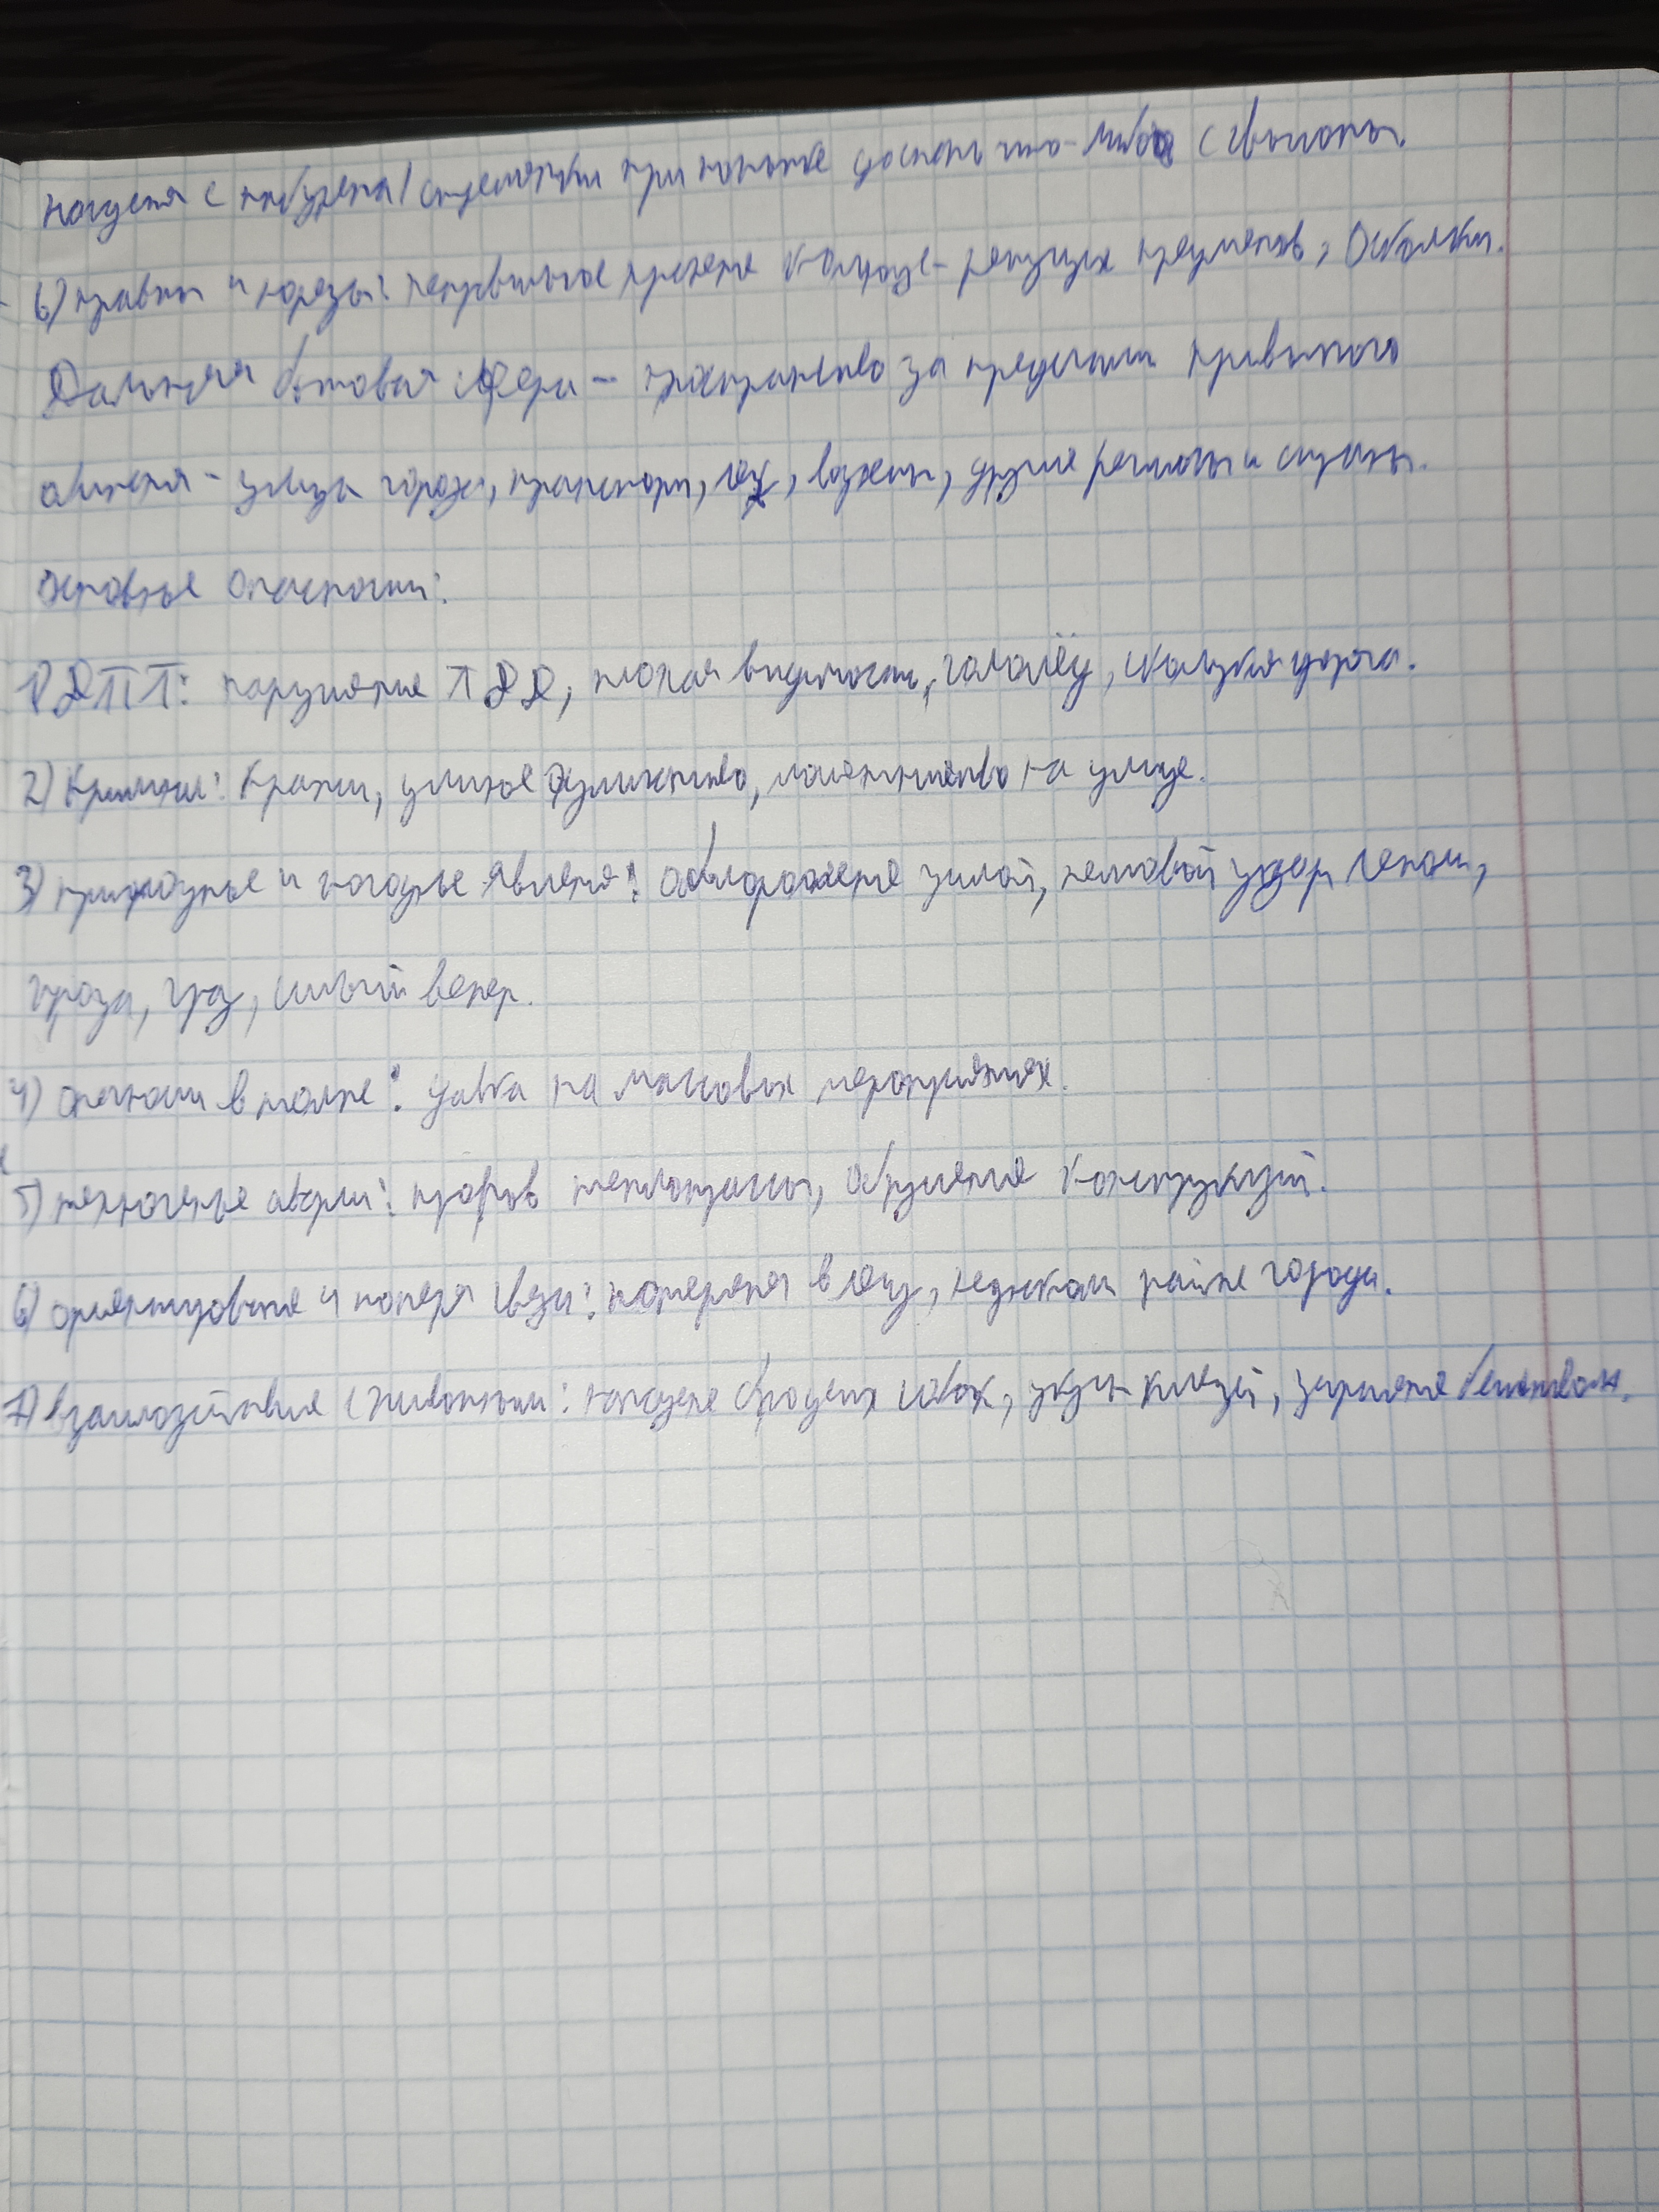 падения с табурета/стремянки при попытке достать что-либо с высоты.
6) травмы и порезы: неправильное хранение колюще-режущих предметов, осколки.
Дальняя бытовая сфера - пространство за пределами привычного
обитания - улицы города, транспорт, лес, водоемы, другие регионы и страны.
Основные опасности:
1) ДТП: нарушение ПДД, плохая видимость, гололёд, скользкая дорога.
2) Криминал: кражи, уличное хулиганство, мошенничество на улице.
3) природные и погодные явления: обморожение зимой, тепловой удар летом,
гроза, град, сильный ветер.
4) опасности в толпе: давка на массовых мероприятиях.
5) техногенные аварии: прорыв теплотрассы, обрушение конструкций.
6) ориентирование и потеря связи: потеряться в лесу, незнакомом районе города.
7) взаимодействие с животными: нападение бродячих собак, укусы клещей, заражение бешенством.